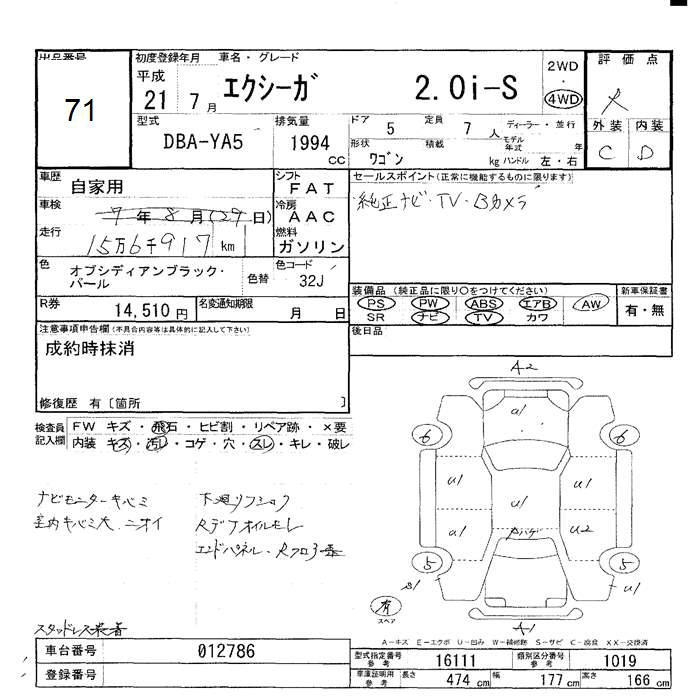 出品番号
71
初度登録年月 車名・グレード
平成
21 7月 エクシーガ 2.0i-S
2WD
・
4WD
評価点
外装 内装
C D
型式 排気量
DBA-YA5 1994 cc
ドア 5 定員 7人 ディーラー・並行
形状 ワゴン 積載 kg
モデル年式 年
ハンドル 左・右
車歴 自家用
シフト FAT
車検 7年8月(29日)
冷房 AAC
走行 15万6千917km
燃料 ガソリン
色 オブシディアンブラック・パール
色替
色コード 32J
R券 14,510円 名変通知期限 月 日
セールスポイント(正常に機能するものに限ります)
純正ナビ・TV・Bカメラ
装備品(純正品に限り○をつけてください)
PS PW ABS エアB AW
SR ナビ TV カワ
新車保証書
有・無
後日品
注意事項申告欄(不具合内容等は具体的に記入して下さい)
成約時抹消
修復歴 有〔箇所 〕
検査員記入欄
FW キズ・飛石・ヒビ割・リペア跡・×要
内装 キズ・汚レ・コゲ・穴・スレ・キレ・破レ
ナビモニターキバミ
室内キバミ大 ニオイ
下廻リ
Rデフオイルモレ
エンドパネル・Rフロア
スタッドレス装着
A2
a1
6 6
u1 u1
u1
a1 u2
5 5
s1 u1
A1
有
スペア
A-キズ E-エクボ U-凹み W-補修跡 S-サビ C-腐食 XX-交換済
車台番号 012786
登録番号
型式指定番号 参考 16111 類別区分番号 参考 1019
車庫証明用 参考 長さ 474cm 幅 177cm 高さ 166cm